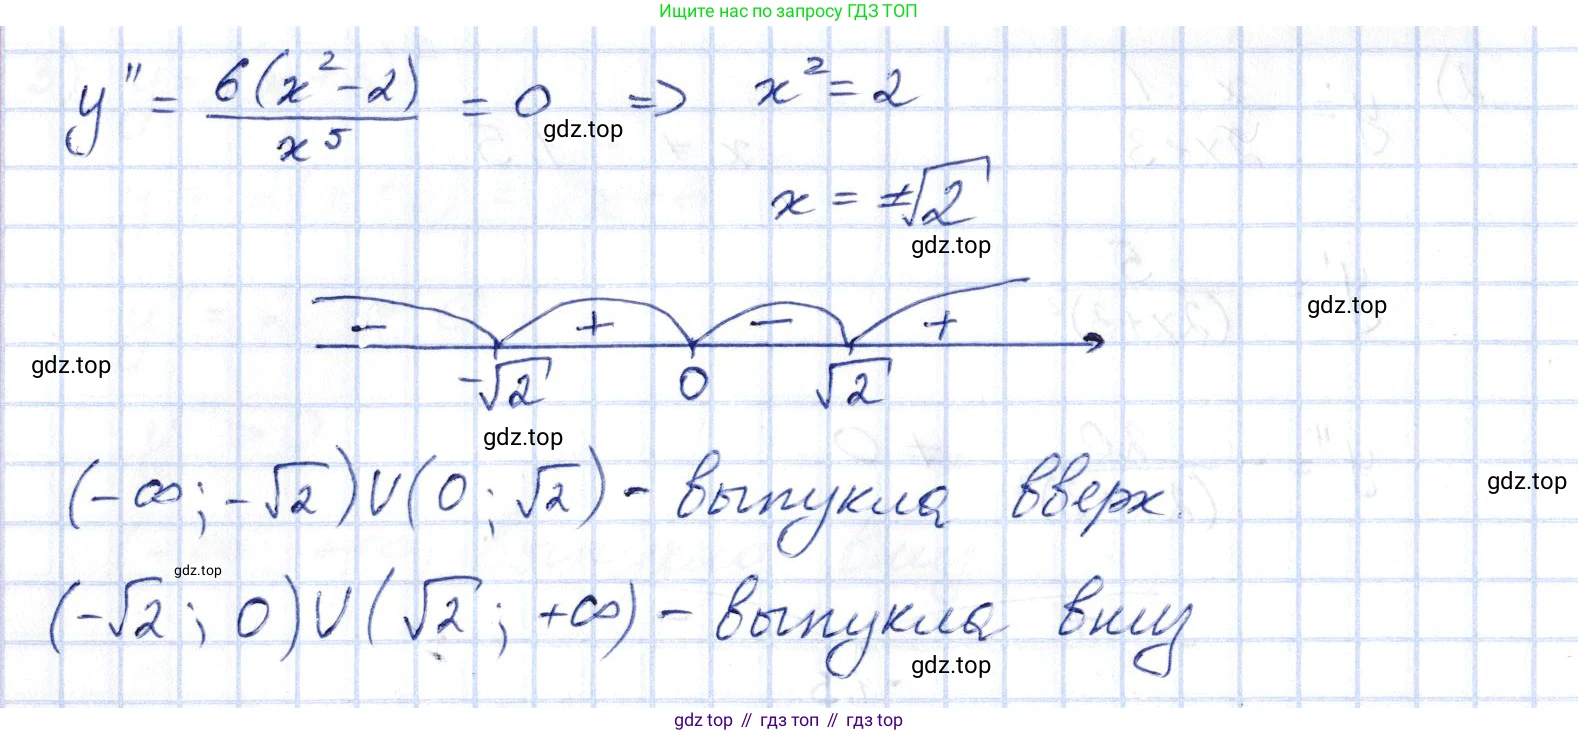 Ищите нас по запросу ГДЗ ТОП
y'' = 6(x² - 2) / x⁵ = 0 => x² = 2
gdz.top
x = ±√2
gdz.top
gdz.top
- + - +
gdz.top
-√2 0 √2
gdz.top
(-∞; -√2) ∪ (0; √2) - выпукла вверх.
gdz.top
gdz.top
(-√2; 0) ∪ (√2; +∞) - выпукла вниз
gdz.top
gdz top // гдз топ // гдз top